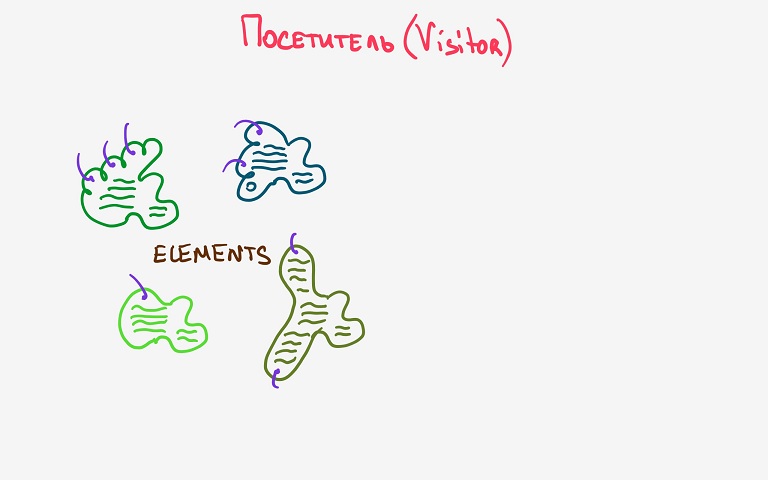 Посетитель (Visitor)
ELEMENTS